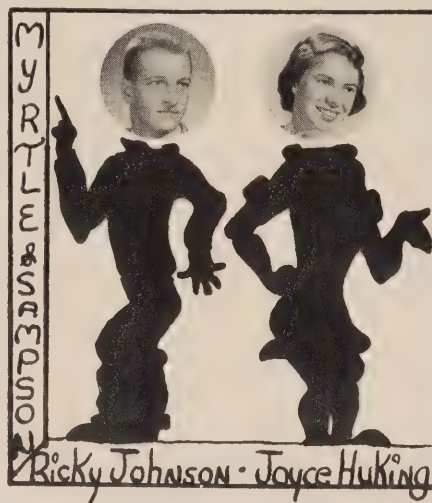 MYRTLE & SAMPSON
Ricky Johnson - Joyce Huking